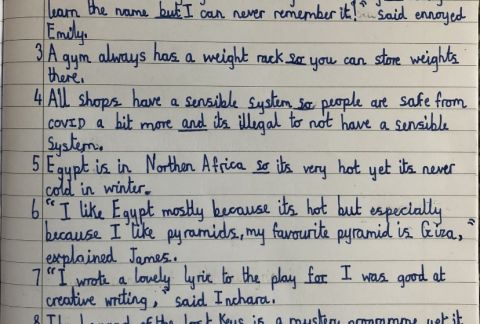 learn the name but I can never remember it!" said ennoyed
Emily.
3 A gym always has a weight rack so you can store weights
there.
4 All shops have a sensible system so people are safe from
COVID a bit more and its illegal to not have a sensible
System.
5 Egypt is in Northen Africa so its very hot yet its never
cold in winter.
6 "I like Egypt mostly because its hot but especially
because I like pyramids, my favourite pyramid is Giza,"
explained James.
7 "I wrote a lovely lyric to the play for I was good at
creative writing," said Inchara.
8 of the lost Keys is a mystery programme yet it